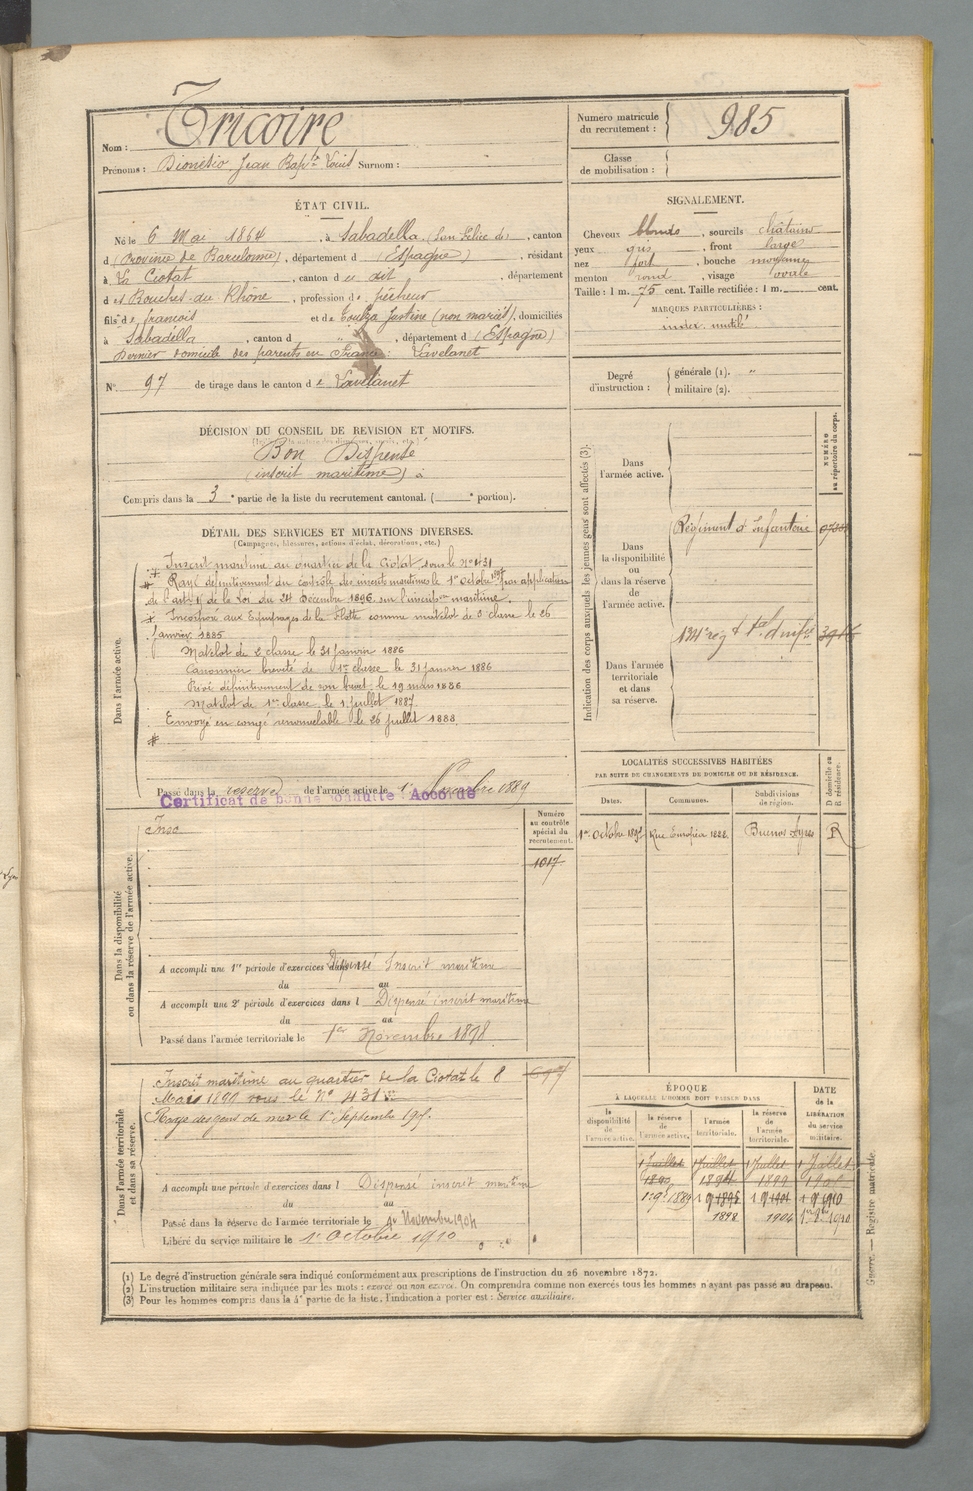 Nom : Tricoire
Prénoms : Dionesio Jean Bap^te Louis Surnom :
Numéro matricule du recrutement : 985
Classe de mobilisation :
ÉTAT CIVIL.
Né le 6 Mai 1864, à Sabadella (San Féliée de), canton
d (Province de Barcelonne), département d (Espagne), résidant
à La Ciotat, canton d u dit, département
d es Bouches-du-Rhône, profession de pêcheur
fils de françois et de Toulza Justine (non mariés), domiciliés
à Sabadélla, canton d " , département d (Espagne)
Dernier domicile des parents en France : Lavelanet
N° 97 de tirage dans le canton d e Lavelanet
SIGNALEMENT.
Cheveux blonds, sourcils châtains
yeux gris, front large
nez fort, bouche moyenne
menton rond, visage ovale
Taille : 1 m. 75 cent. Taille rectifiée : 1 m. cent.
MARQUES PARTICULIÈRES :
index mutilé
Degré d'instruction : générale (1). "
militaire (2).
DÉCISION DU CONSEIL DE REVISION ET MOTIFS.
Bon Dispensé
(inscrit maritime)
Compris dans la 3e partie de la liste du recrutement cantonal. ( e portion).
DÉTAIL DES SERVICES ET MUTATIONS DIVERSES.
(Campagnes, blessures, actions d'éclat, décorations, etc.)
Dans l'armée active.
Inscrit maritime au quartier de la Ciotat, sous le N° 431
Rayé définitivement du contrôle des inscrits maritimes le 1er octobre par application
de l'art. de la Loi du 24 Décembre 1896 sur l'inscription maritime.
Incorporé aux Equipages de la Flotte comme matelot de 3e classe le 26
Janvier 1885
Matelot de 2 classe le 31 Janvier 1886
Canonnier breveté de 1re classe le 31 Janvier 1886
Privé définitivement de son brevet le 19 mars 1886
Matelot de 1re classe le 1 Juillet 1887.
Envoyé en congé renouvelable le 26 Juillet 1888.
Passé dans la réserve de l'armée active le 1 Novembre 1889
Certificat de bonne conduite Accordé
Indication des corps auxquels les jeunes gens sont affectés (3).
NUMÉRO au répertoire du corps.
Dans l'armée active.
Dans la disponibilité ou dans la réserve de l'armée active.
Régiment d'Infanterie
Dans l'armée territoriale et dans sa réserve.
134e rég t t^al d'inf^ie
LOCALITÉS SUCCESSIVES HABITÉES
PAR SUITE DE CHANGEMENTS DE DOMICILE OU DE RÉSIDENCE.
Dates. Communes. Subdivisions de région. D domicile ou R résidence.
1er Octobre Rue Européa 1222. Buenos-Ayres R
Dans la disponibilité ou dans la réserve de l'armée active.
Numéro au contrôle spécial du recrutement.
Insc
1017
A accompli une 1re période d'exercices dans Dispensé Inscrit maritime
du au
A accompli une 2e période d'exercices dans l Dispensé inscrit maritime
du au
Passé dans l'armée territoriale le 1er Novembre 1898
Dans l'armée territoriale et dans sa réserve.
Inscrit maritime au quartier de la Ciotat le 8
Mars 1890 sous le N° 431
Rayé des gens de mer le 1er Septembre
A accompli une période d'exercices dans l Dispensé inscrit maritime
du au
Passé dans la réserve de l'armée territoriale le 1er Novembre 1904
Libéré du service militaire le 1er Octobre 1910
ÉPOQUE
À LAQUELLE L'HOMME DOIT PASSER DANS
DATE de la LIBÉRATION du service militaire.
la disponibilité de l'armée active. la réserve de l'armée active. l'armée territoriale. la réserve de l'armée territoriale.
1 Juillet 1 Juillet 1 Juillet 1 Juillet
1er 9bre 1889
1898 1904
(1) Le degré d'instruction générale sera indiqué conformément aux prescriptions de l'instruction du 26 novembre 1872.
(2) L'instruction militaire sera indiquée par les mots : exercé ou non exercé. On comprendra comme non exercés tous les hommes n'ayant pas passé au drapeau.
(3) Pour les hommes compris dans la 4e partie de la liste, l'indication à porter est : Service auxiliaire.
Guerre. — Registre matricule.